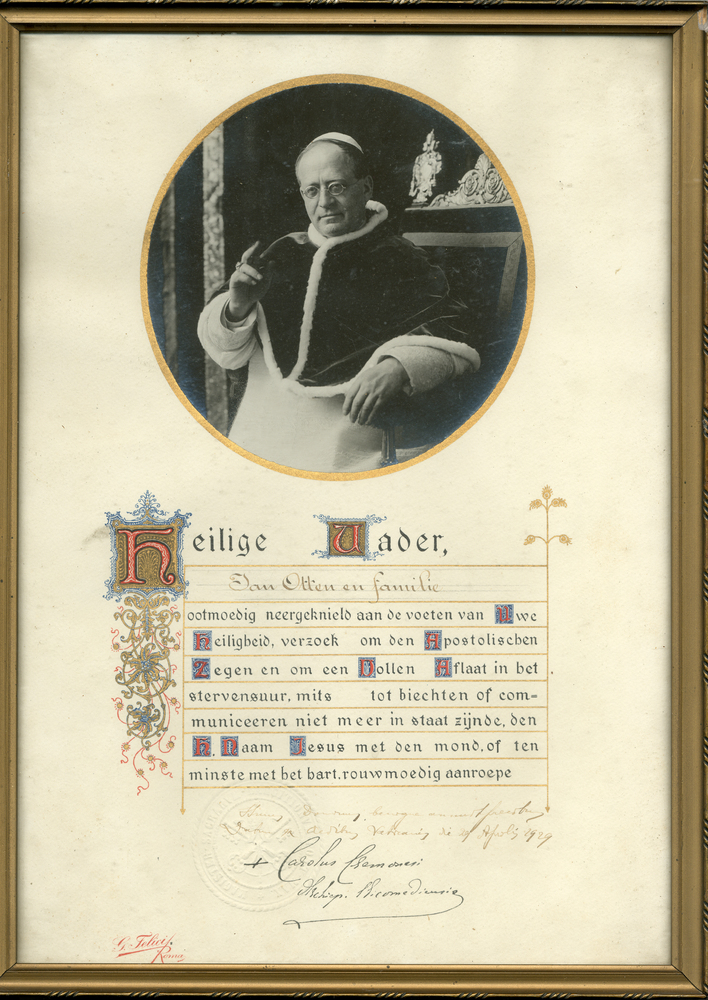 Heilige Vader,
Jan Otten en familie
ootmoedig neergeknield aan de voeten van Uwe
Heiligheid, verzoek om den Apostolischen
Zegen en om een Vollen Aflaat in het
stervensuur, mits tot biechten of com=
municeeren niet meer in staat zijnde, den
H. Naam Jesus met den mond, of ten
minste met het hart, rouwmoedig aanroepe
die 29
+ Carolus Cremonesi
Archiep. Nicomediensis
G. Felici
Roma